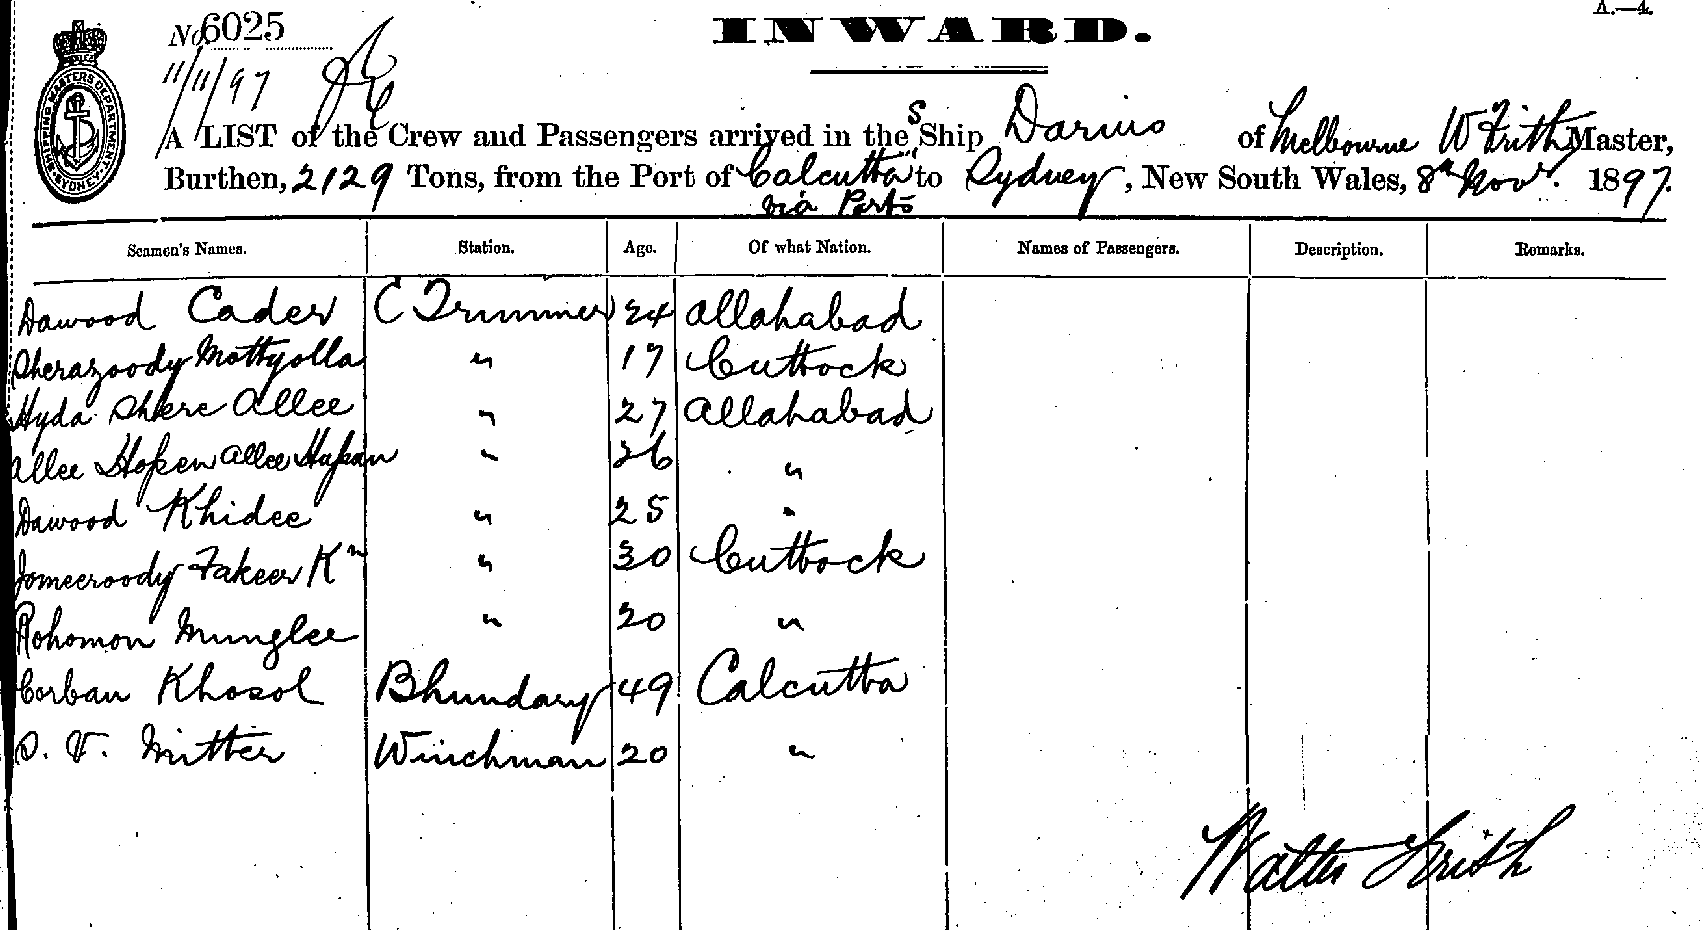 A.—4.
No 6025
INWARD.
11/11/97
SHIPPING MASTERS DEPARTMENT SYDNEY
A LIST of the Crew and Passengers arrived in the S Ship Darius of Melbourne W Frith Master,
Burthen, 2129 Tons, from the Port of Calcutta to Sydney, New South Wales, 8th Novr. 1897.
via Ports
Seamen's Names. Station. Age. Of what Nation. Names of Passengers. Description. Remarks.
Dawood Cader C Trimmer 24 Allahabad
Sherazoody Mottyolla " 17 Cuttock
Hyda Shere Allee " 27 Allahabad
Allee Hossen Allee " 26 "
Dawood Khidee " 25 "
Jomeeroody Fakeer Kn " 30 Cuttock
Rohomon Munglee " 20 "
Corban Khosol Bhundary 49 Calcutta
S. V. Mitter Winchman 20 "
Walter Frith